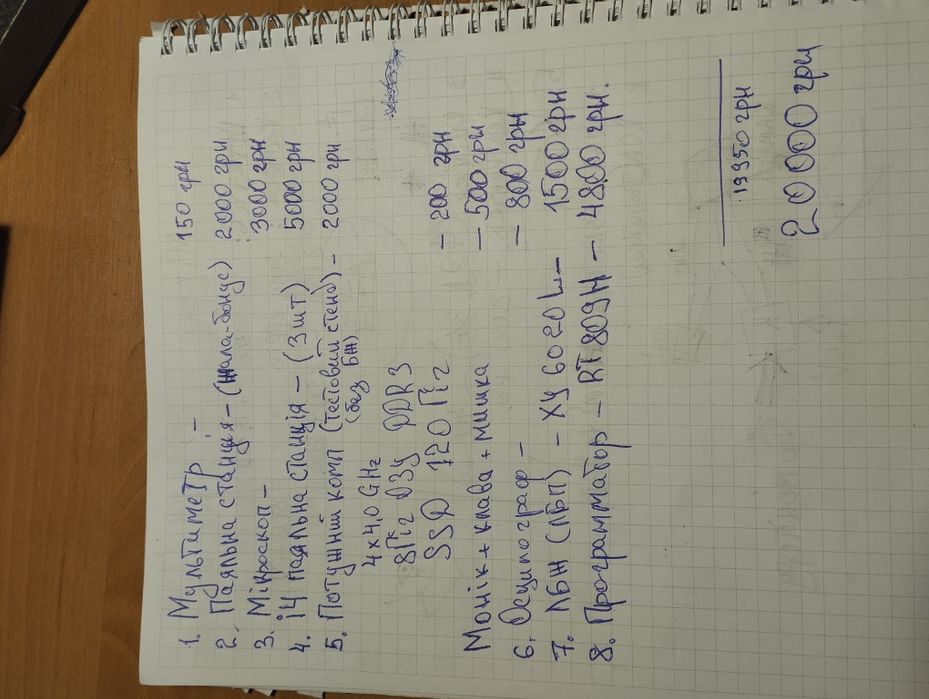 1. Мультиметр – 150 грн
2. Паяльна станція – (жала-бонус) 2000 грн
3. Мікроскоп – 3000 грн
4. ІЧ паяльна станція – (3 шт) 5000 грн
5. Потужний комп (тестовий стенд) – 2000 грн
(без БЖ)
4x4,0 GHz
8Гіг ОЗУ DDR3
SSD 120 Гіг
Монік + клава + мишка – 200 грн
6. Осцилограф – – 500 грн
– 800 грн
7. ЛБЖ (ЛБП) – XY6020L – 1500 грн
8. Программатор – RT809H – 4800 грн.
19950 грн
20000 грн